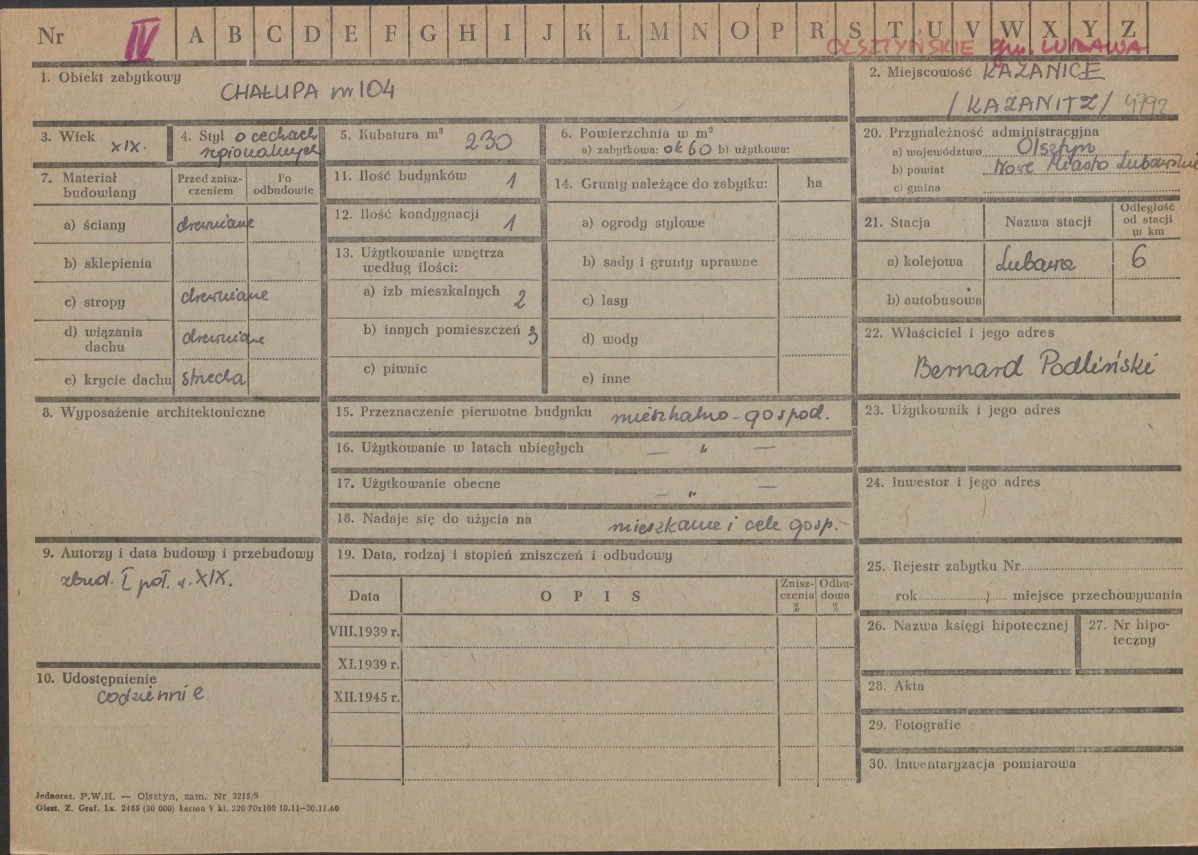 Nr IV A B C D E F G H I J K L M N O P R S T U V W X Y Z
OLSZTYŃSKIE gm. LUBAWA
1. Obiekt zabytkowy
CHAŁUPA nr 104
2. Miejscowość KAZANICE
/KAZANITZ/ 4792
3. Wiek
XIX.
4. Styl o cechach
regionalnych
5. Kubatura m³ 230
6. Powierzchnia w m²
a) zabytkowa: ok 60 b) użytkowa:
20. Przynależność administracyjna
a) województwo Olsztyn
b) powiat Nowe Miasto Lubawskie
c) gmina
7. Materiał
budowlany
Przed znisz-
czeniem
Po
odbudowie
a) ściany drewniane
b) sklepienia
c) stropy drewniane
d) wiązania
dachu
drewniane
e) krycie dachu strzecha
11. Ilość budynków 1
12. Ilość kondygnacji 1
13. Użytkowanie wnętrza
według ilości:
a) izb mieszkalnych 2
b) innych pomieszczeń 3
c) piwnic
14. Grunty należące do zabytku: ha
a) ogrody stylowe
b) sady i grunty uprawne
c) lasy
d) wody
e) inne
21. Stacja Nazwa stacji
Odległość
od stacji
w km
a) kolejowa Lubawa 6
b) autobusowa
22. Właściciel i jego adres
Bernard Podliński
8. Wyposażenie architektoniczne
15. Przeznaczenie pierwotne budynku mieszkalno-gospod.
16. Użytkowanie w latach ubiegłych — " —
17. Użytkowanie obecne — " —
18. Nadaje się do użycia na mieszkanie i cele gosp.
23. Użytkownik i jego adres
24. Inwestor i jego adres
9. Autorzy i data budowy i przebudowy
zbud. I poł. w. XIX.
19. Data, rodzaj i stopień zniszczeń i odbudowy
Data OPIS
Znisz-
czenia
%
Odbu-
dowa
%
VIII.1939 r.
XI.1939 r.
XII.1945 r.
25. Rejestr zabytku Nr
rok miejsce przechowywania
26. Nazwa księgi hipotecznej
27. Nr hipo-
teczny
10. Udostępnienie
codziennie
28. Akta
29. Fotografie
30. Inwentaryzacja pomiarowa
Jednoraz. P.W.H. — Olsztyn, zam. Nr 3215/S
Olszt. Z. Graf. Lz. 2455 (30 000) karton V kl. 220 70x100 10.11—30.11.60